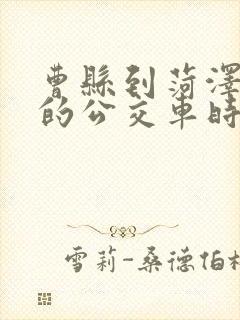 曹縣到菏澤
的公交車時
雪莉-桑德伯格